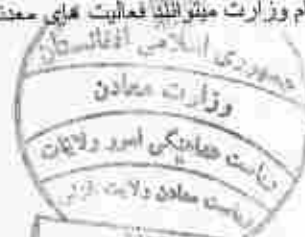 م وزارت میتوانند فعالیت های معدنی
جمهوری اسلامی افغانستان
وزارت معادن
ریاست هماهنگی امور ولایات
ریاست معادن ولایت